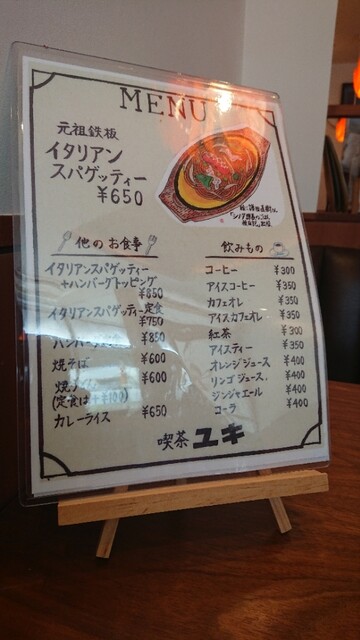 MENU
元祖鉄板
イタリアン
スパゲッティー
¥650
他のお食事
イタリアンスパゲッティー
+ハンバーグトッピング
¥850
イタリアンスパゲッティー定食
¥750
¥850
焼そば ¥600
¥600
(定食は+¥100)
カレーライス ¥650
飲みもの
コーヒー ¥300
アイスコーヒー ¥350
カフェオレ ¥350
アイスカフェオレ ¥350
紅茶 ¥300
アイスティー ¥350
オレンジジュース ¥400
リンゴジュース ¥400
ジンジャエール ¥400
コーラ ¥400
喫茶 ユキ